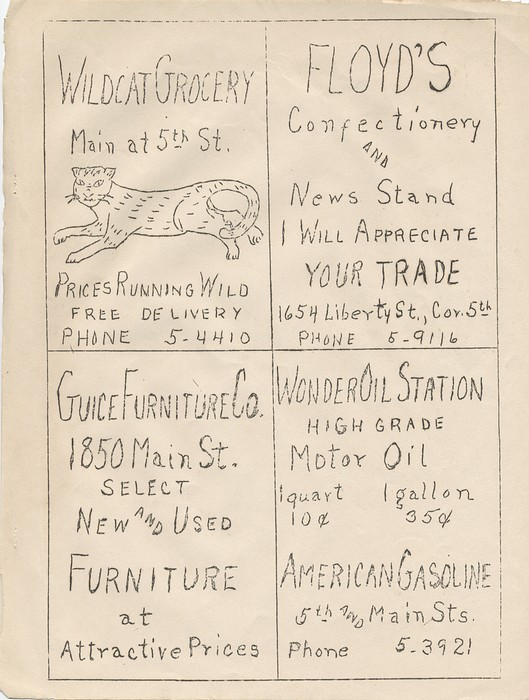 WILDCAT GROCERY
Main at 5th St.
PRICES RUNNING WILD
FREE DELIVERY
PHONE 5-4410
FLOYD'S
Confectionery
AND
News Stand
I WILL APPRECIATE
YOUR TRADE
1654 Liberty St., Cor. 5th
PHONE 5-9116
GUICE FURNITURE Co.
1850 Main St.
SELECT
NEW AND USED
FURNITURE
at
Attractive Prices
WONDER OIL STATION
HIGH GRADE
Motor Oil
1 quart 1 gallon
10¢ 35¢
AMERICAN GASOLINE
5th AND Main Sts.
Phone 5-3921